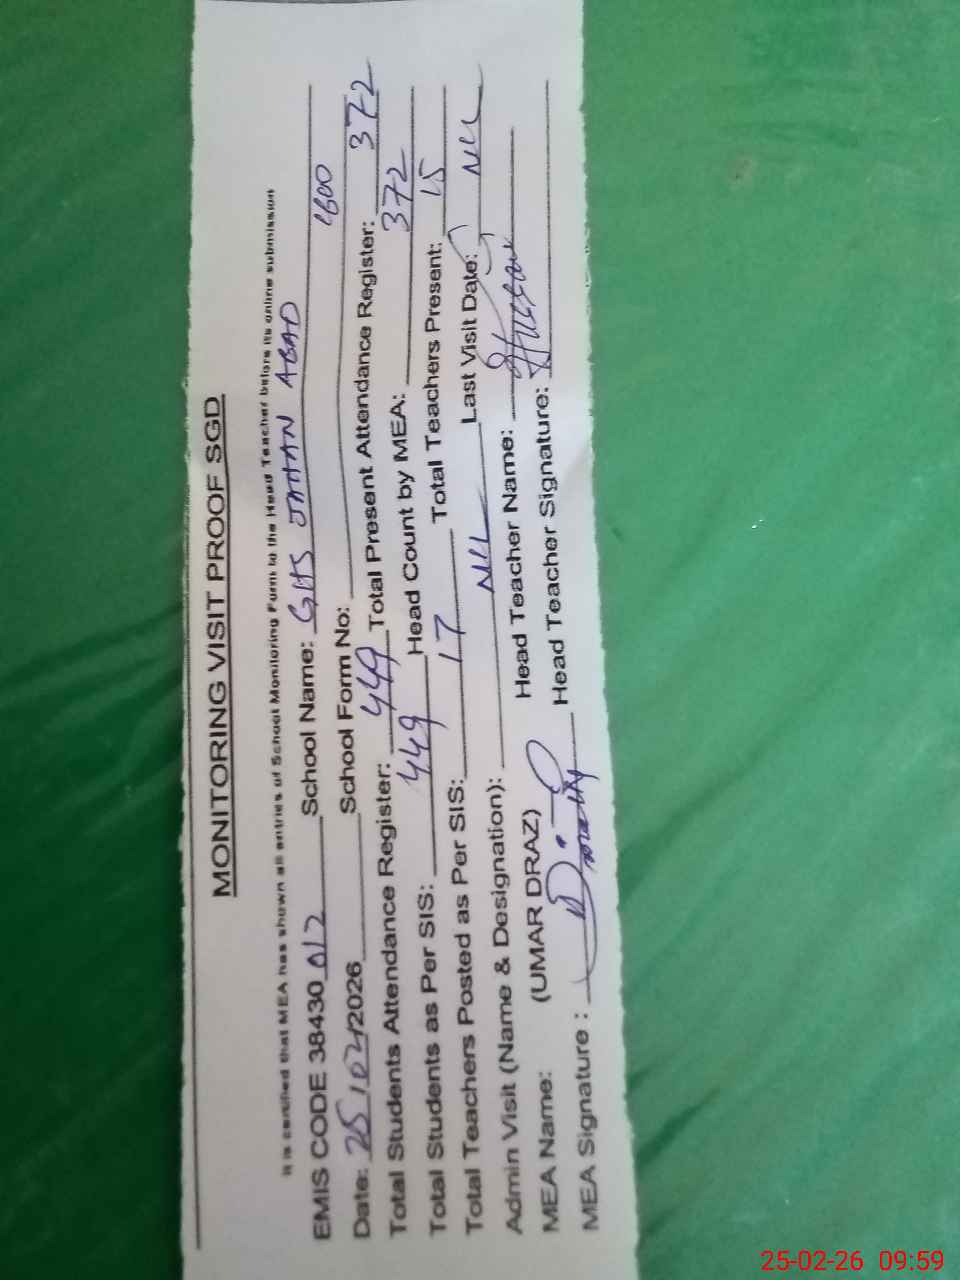 MONITORING VISIT PROOF SGD
It is certified that MEA has shown all entries of School Monitoring Form to the Head Teacher before its online submission
EMIS CODE 38430 012 School Name: GHS JAHAN ABAD
Date: 25/02/2026 School Form No:
Total Students Attendance Register: 449 Total Present Attendance Register: 372
Total Students as Per SIS: 449 Head Count by MEA: 372
Total Teachers Posted as Per SIS: 17 Total Teachers Present: 15
Admin Visit (Name & Designation): NIL Last Visit Date: NIL
MEA Name: (UMAR DRAZ) Head Teacher Name:
MEA Signature : Head Teacher Signature:
25-02-26 09:59